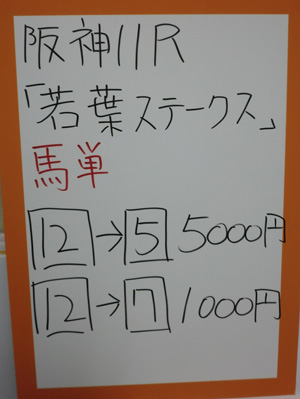 阪神11R
「若葉ステークス」
馬単
12→5 5000円
12→7 1000円